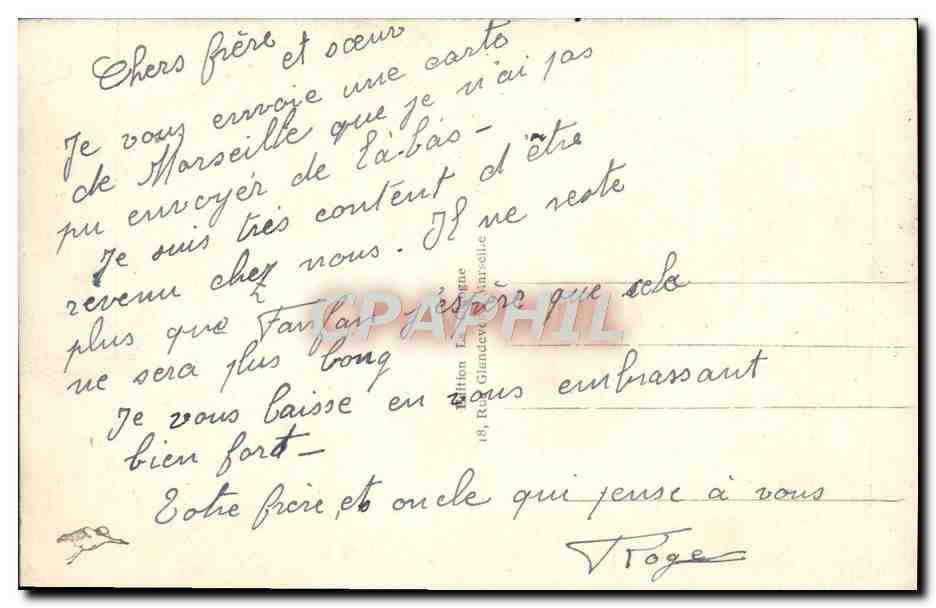 Chers frère et sœur
Je vous envoie une carte
de Marseille que je n'ai pas
pu envoyer de là-bàs -
Je suis très content d'être
revenu chez nous. Il ne reste
plus que Fanfan j'éspère que cela
ne sera plus long
Je vous laisse en vous embrassant
bien fort -
Votre frère, et oncle qui pense à vous
Roger
Edition
18, Rue Marseille
CPAPHIL